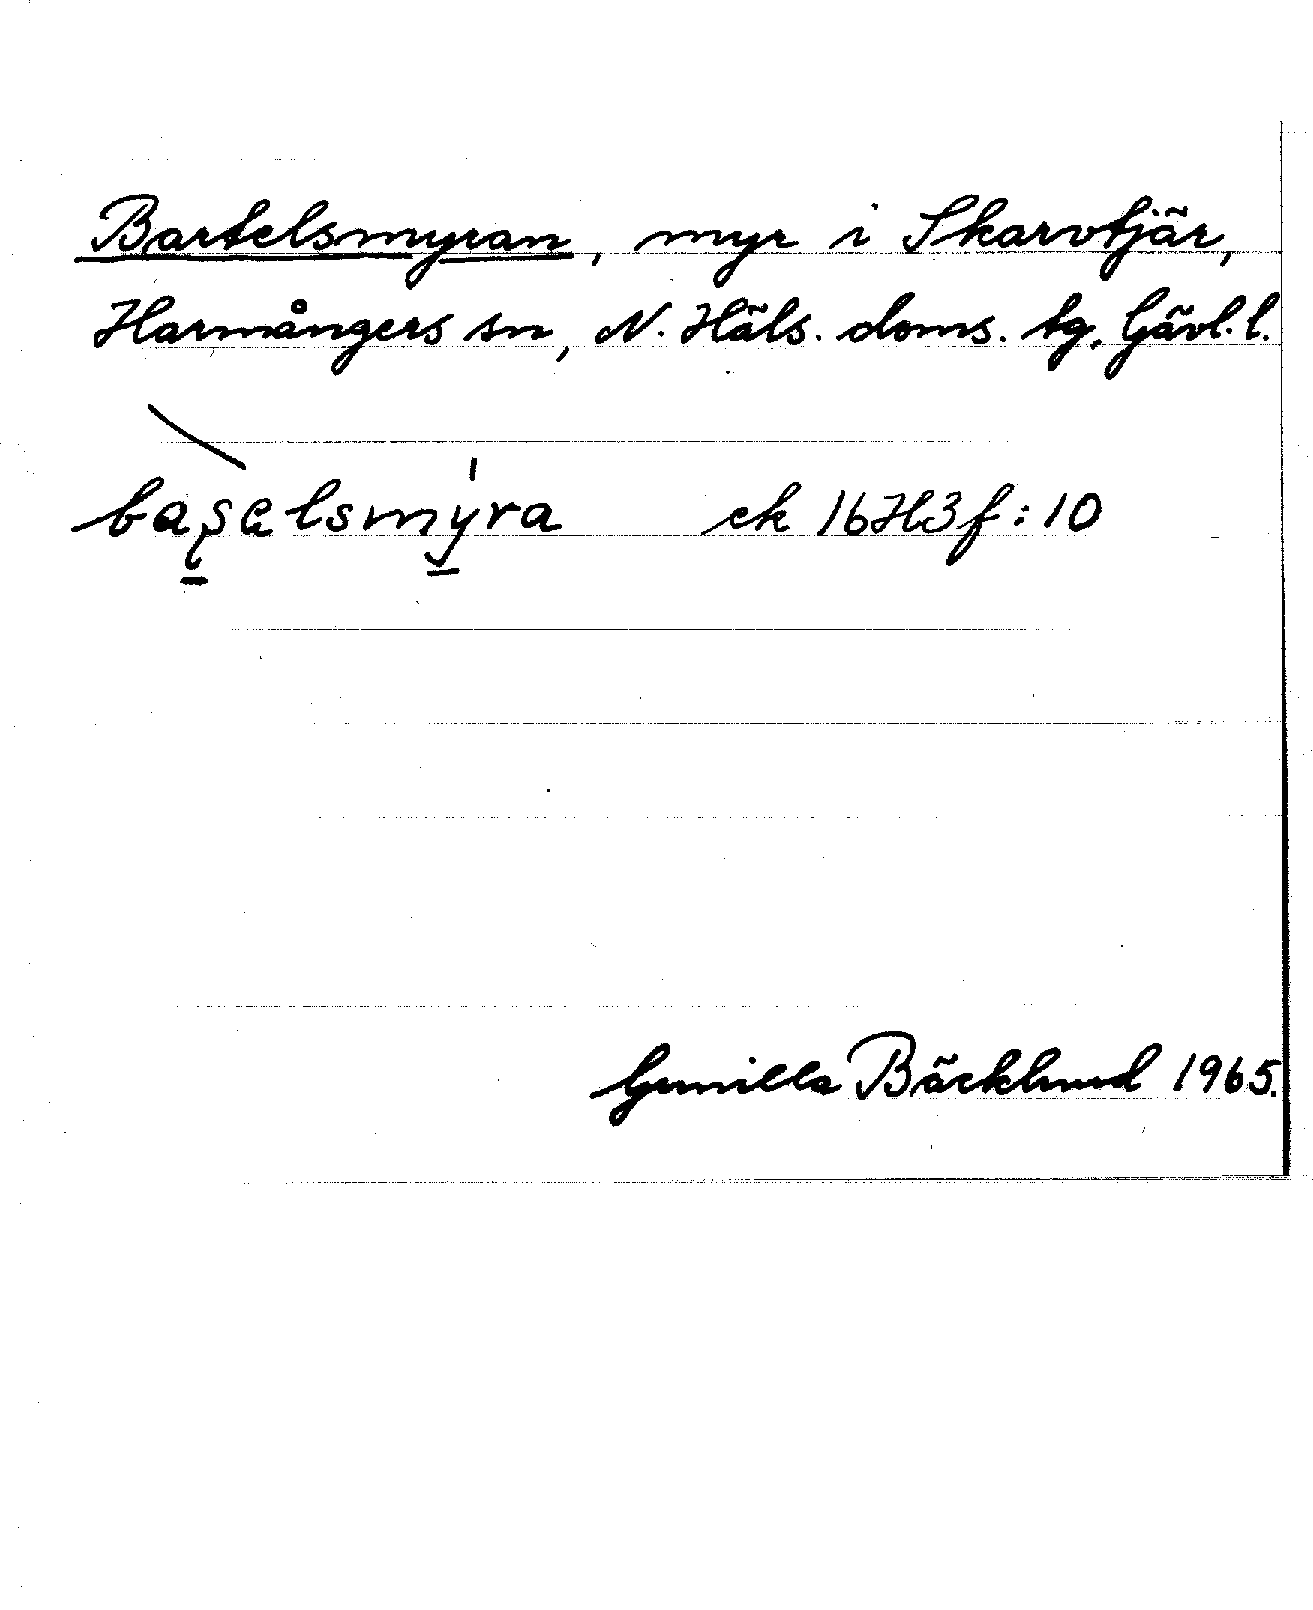 Bartelsmyran, myr i Skarvtjär,
Harmångers sn, N. Häls. doms. tg, Gävl. l.
baʂəlsmyra ek 16H3f:10
Gunilla Bäcklund 1965.